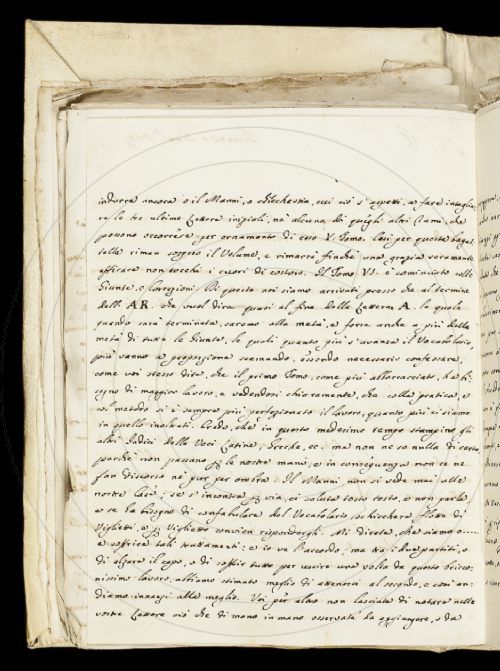 indurre ancora o il Manni, o chichessia, cui ciò s'aspetti, a fare intaglia-
re le tre ultime Lettere iniziali, nè alcuno di quegli altri Rami, che
possono occorrere per ornamento di esso V. Tomo. Così per queste bagat-
telle riman sospeso il Volume, e rimarrà finchè una grazia veramente
efficace non tocchi i cuori di costoro. Il Tomo VI. è cominciato colle
Giunte, e Correzioni. Di queste noi siamo arrivati presso che al termine
dell' AR. che vuol dire quasi al fine della Lettera A. la quale
quando sarà terminata, saremo alla metà, e forse anche a più della
metà di tutte le Giunte, le quali quanto più s'avanza il Vocabolario,
più vanno a proporzione scemando, essendo necessario confessare,
come voi stesso dite, che il primo Tomo, come più abboracciato, ha bi-
sogno di maggior lavoro, e vedendosi chiaramente, che colla pratica, e
col metodo si è sempre più perfezionato il lavoro, quanto più ci siamo
in quello inoltrati. Credo, che in questo medesimo tempo stampino gli
altri Indici delle Voci Latine, Greche, ec. ma non ne so nulla di certo
perchè non passano p le nostre mani, e in conseguenza non ce ne
fan discorso nè pur per ombra. Il Manni non si vede mai alle
nostre case; se s'incontra p via, ci saluta tosto tosto, e non parla
e se ha bisogno di confabulare del Vocabolario, schicchera di
Viglietti, e p Viglietto convien rispondergli. Mi direte, che siamo o....
a soffrire tali trattamenti: e io ve l'accordo, ma tra i due partiti, o
di alzare il capo, o di soffrir tutto per uscire una volta da questo bricco-
nissimo lavoro, abbiamo stimato meglio di attenerci al secondo, e così an-
diamo innanzi alla meglio. Voi per altro non lasciate di notare nelle
vostre Lettere ciò che di mano in mano osservate da aggiungere, o da